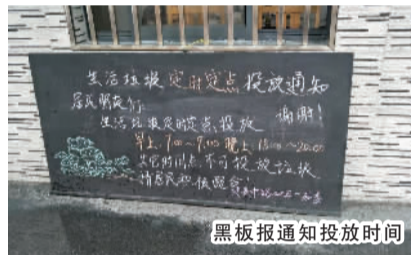 生活垃圾定时定点投放通知
居民朋友们:
谢谢!
生活垃圾定时定点投放
早上:7:00~9:00 晚上:18:00~20:00
其它时间点不可投放垃圾
请居民积极配合!
黑板报通知投放时间